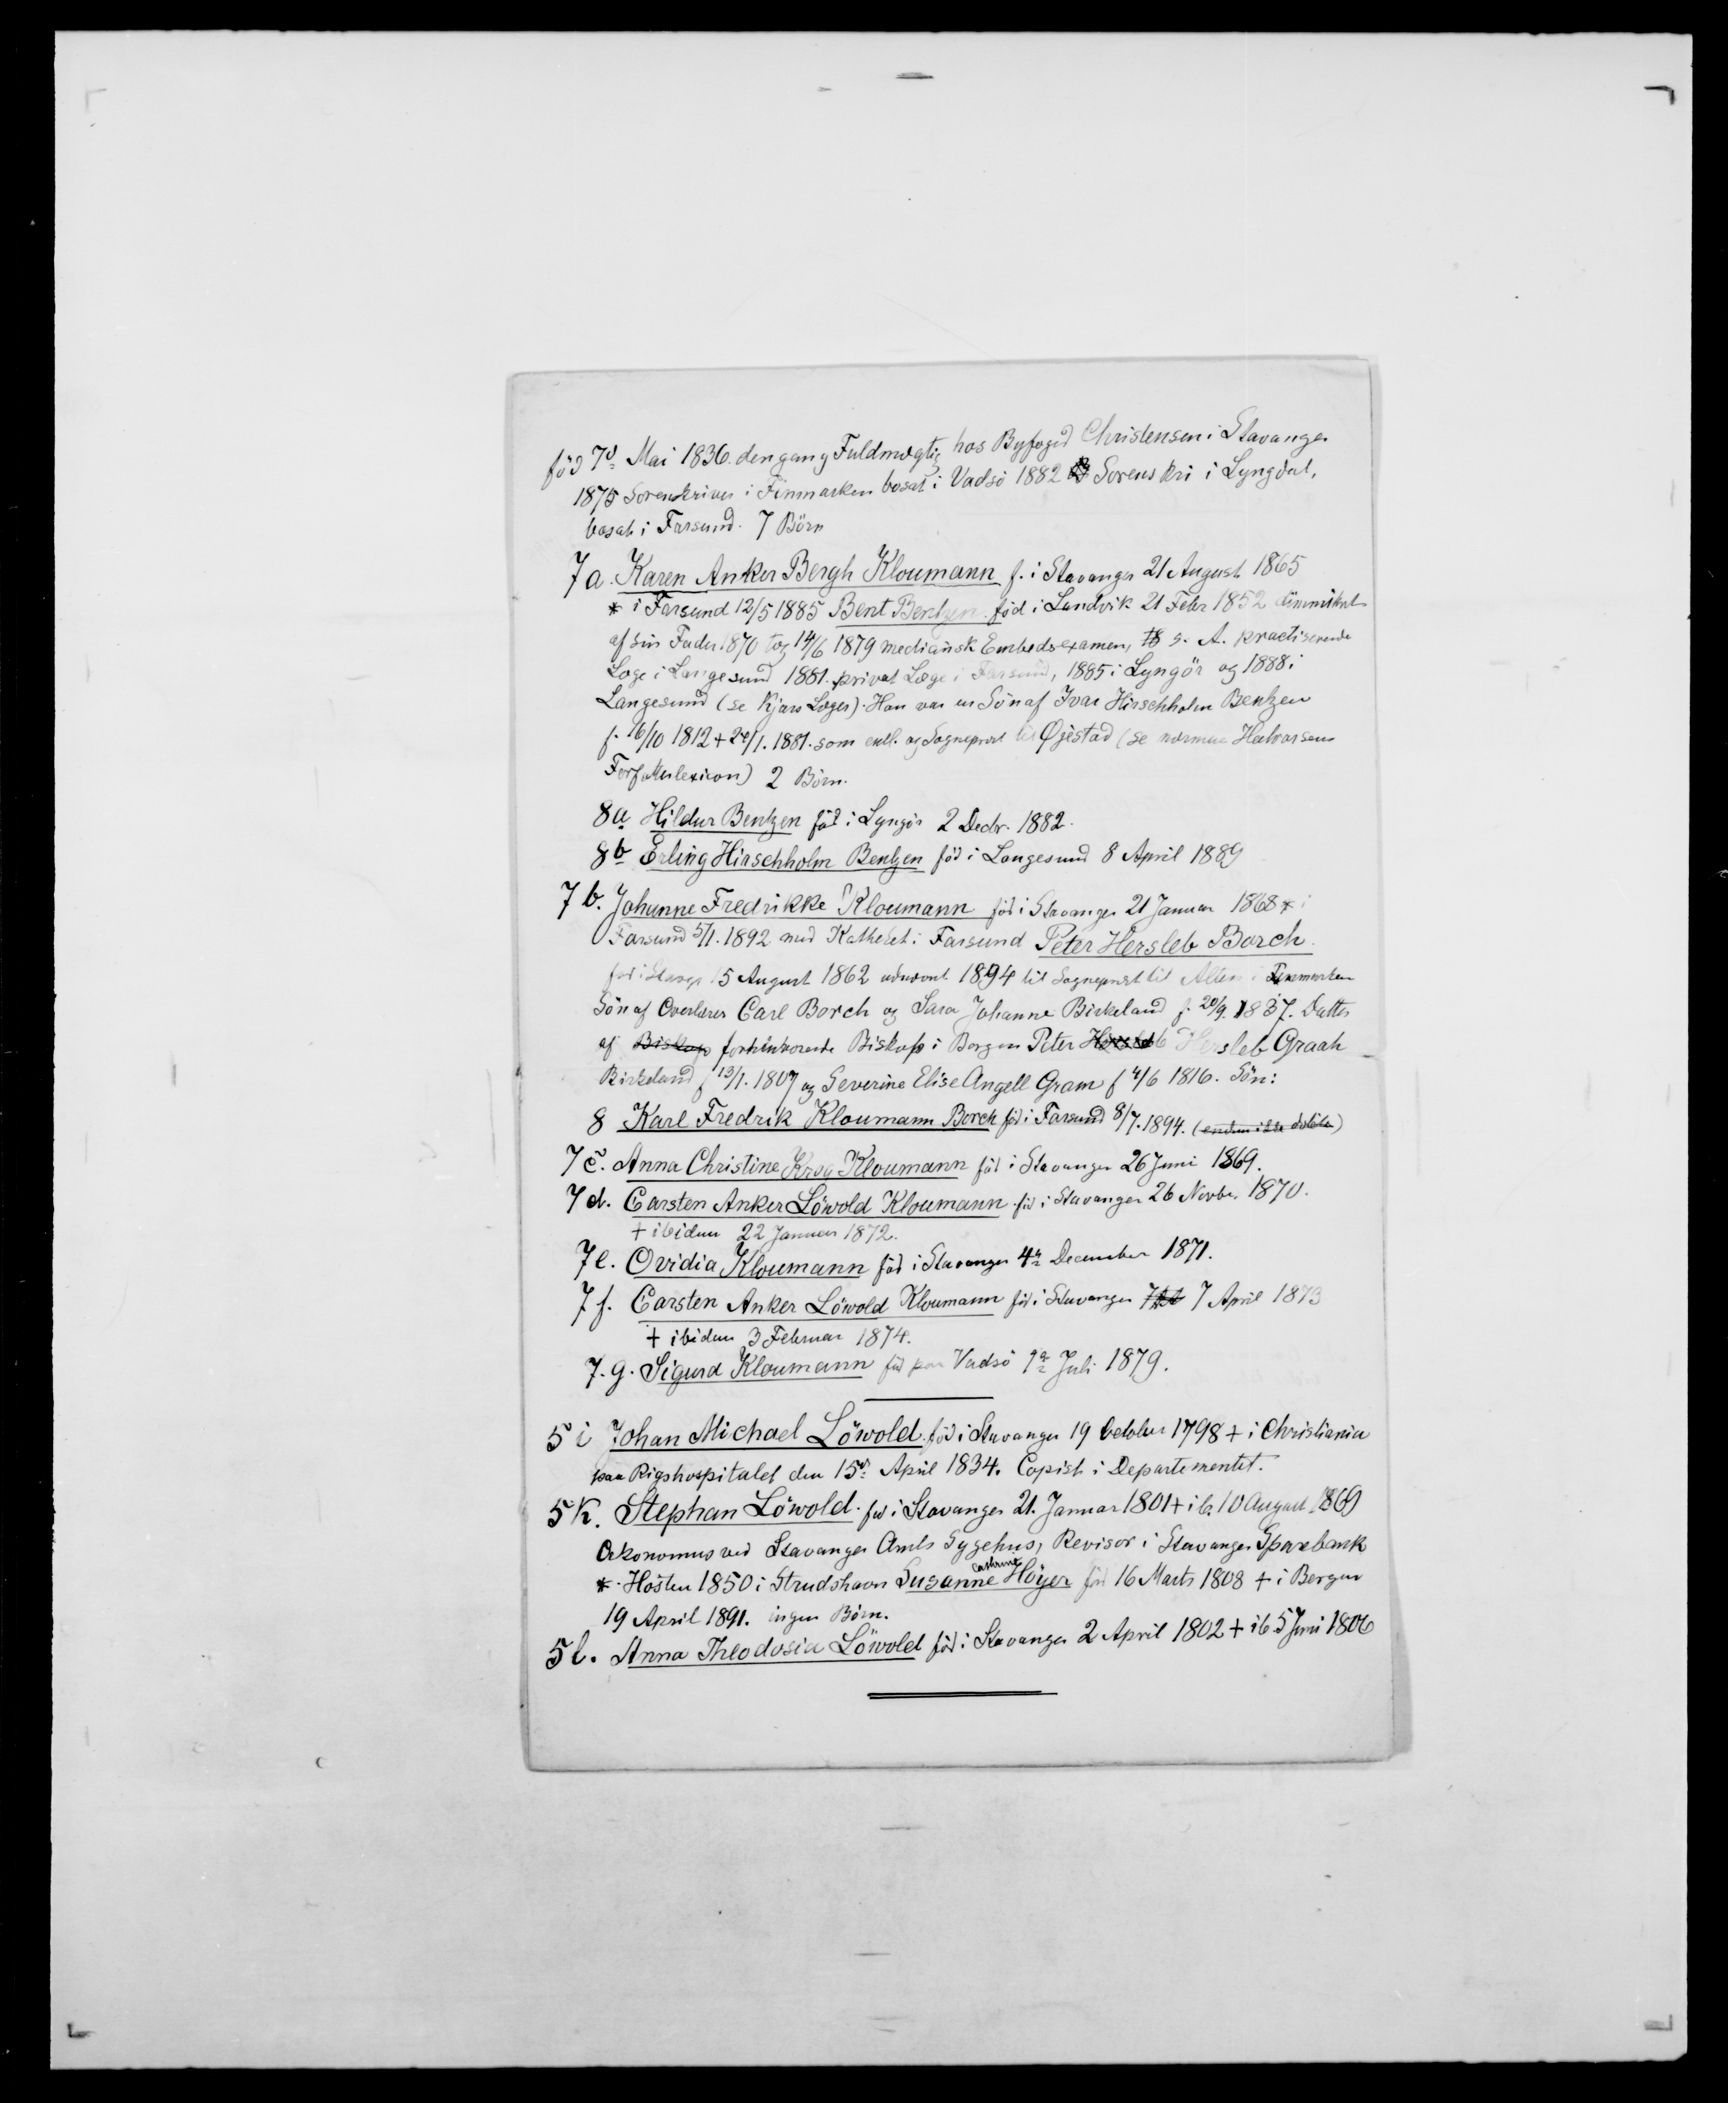 föd 7de Mai 1836. dengang Fuldmægtig hos Byfoged Christensen i Stavanger
1875 Sorenskriver i Finmarken bosat i Vadsö 1882 Sorenskri i Lyngdal,
bosat i Farsund. 7 Börn
7a. Karen Anker Bergh Kloumann f. i Stavanger 21 August 1865
* i Farsund 12/5 1885 Bent Bentzen föd i Landvik 21 Febr 1852 dimmitert
af sin Fader 1870 tog 14/6 1879 medicinsk Embedsexamen, s. A. practiserende
Læge i Langesund 1881. privat Læge i Farsund, 1885 i Lyngör og 1888 i
Langesund (se Kjærs Læger). Han var en Sön af Ivar Hirschholm Bentzen
f. 16/10 1812 + 24/1. 1881. som og Sogneprest til Øjestad (se nærmere Halvorsens
Forfatterlexicon) 2 Börn.
8a Hildur Bentzen föd i Lyngör 2 Decbr. 1882.
8b Erling Hirschholm Bentzen föd i Langesund 8 April 1889
7b. Johanne Fredrikke Kloumann föd i Stavanger 21 Januar 1868 * i
Farsund 5/1. 1892 med Kateket i Farsund Peter Hersleb Borch.
föd i 15 August 1862 udnævnt 1894 til Sogneprest til Alten i Finmarken
Sön af Overlærer Carl Borch og Sara Johanne Birkeland f. 20/9. 1837. Datter
af Biskop forhenværende Biskop i Bergen Peter Hersleb Graah
Birkeland f 13/1. 1807 og Severine Elise Angell Gram f 4/6 1816. Sön:
8 Karl Fredrik Kloumann Borch föd i Farsund 8/7. 1894. (endnu ikke döbt)
7c. Anna Christine Krog Kloumann föd i Stavanger 26 Juni 1869.
7d. Carsten Anker Löwold Kloumann föd i Stavanger 26 Novbr. 1870.
+ ibidem 22 Januar 1872.
7e. Ovidia Kloumann föd i Stavanger 4de December 1871.
7f. Carsten Anker Löwold Kloumann föd i Stavanger 7 April 1873
+ ibidem 3 Februar 1874.
7.g. Sigurd Kloumann föd paa Vadsö 1de Juli 1879.
5i Johan Michael Löwold föd i Stavanger 19 October 1798 + i Christiania
paa Rigshospitalet den 15de April 1834. Copist i Departementet.
5k. Stephan Löwold. föd i Stavanger 21. Januar 1801 + ib. 10 August 1869
Økonomus ved Stavanger Amts Sygehus, Revisor i Stavanger Sparebank
* Hösten 1850 i Strudshavn Susanne Cathrine Höyer föd 16 Marts 1808 + i Bergen
19 April 1891. ingen Börn.
5l. Anna Theodosia Löwold föd i Stavanger 2 April 1802 + ib. 5 Juni 1806